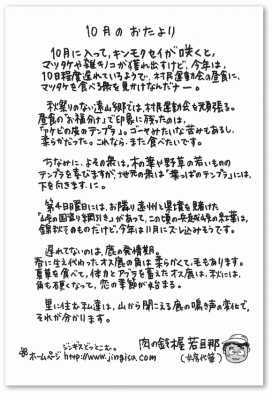 10月のおたより
10月に入って、キンモクセイが咲くと、
マツタケや雑キノコが獲れ出すけど、今年は、
10日程度遅れているようで、村民運動会の昼食に、
マツタケを食べる熊を見かけなんだナー。
秋祭りのない遠山郷では、村民運動会を頑張る。
昼食の「お福分け」で印象に残ったのは、
「アケビの皮のテンプラ」。ゴーヤみたいな苦みもあるし、
柔らかだった。これなら、また食べたいです。
ちなみに、よその衆は、木の葉や野草の若いものの
テンプラを喜びますが、地元の衆は「葉っぱのテンプラ」には、
下を向きます、に。
第4日曜日には、お隣り遠州と県境を賭けた
「峠の国盗り綱引き」があって、この頃の兵越峠の紅葉は、
錦秋そのものだけど、今年は11月にズレ込みそうです。
遅れてないのは、鹿の発情期。
春に生え代わったオス鹿の角は柔らかくて、毛もあります。
夏草を食べて、体力とアブラを蓄えたオス鹿は、秋には、
角も硬くなって、恋の季節が始まる。
里に住む私達は、山から聞こえる鹿の鳴き声の変化で、
それが分かります。
肉の鈴木屋 若旦那
ジンギスどっとこむ。
ホームページ http://www.jingisu.com